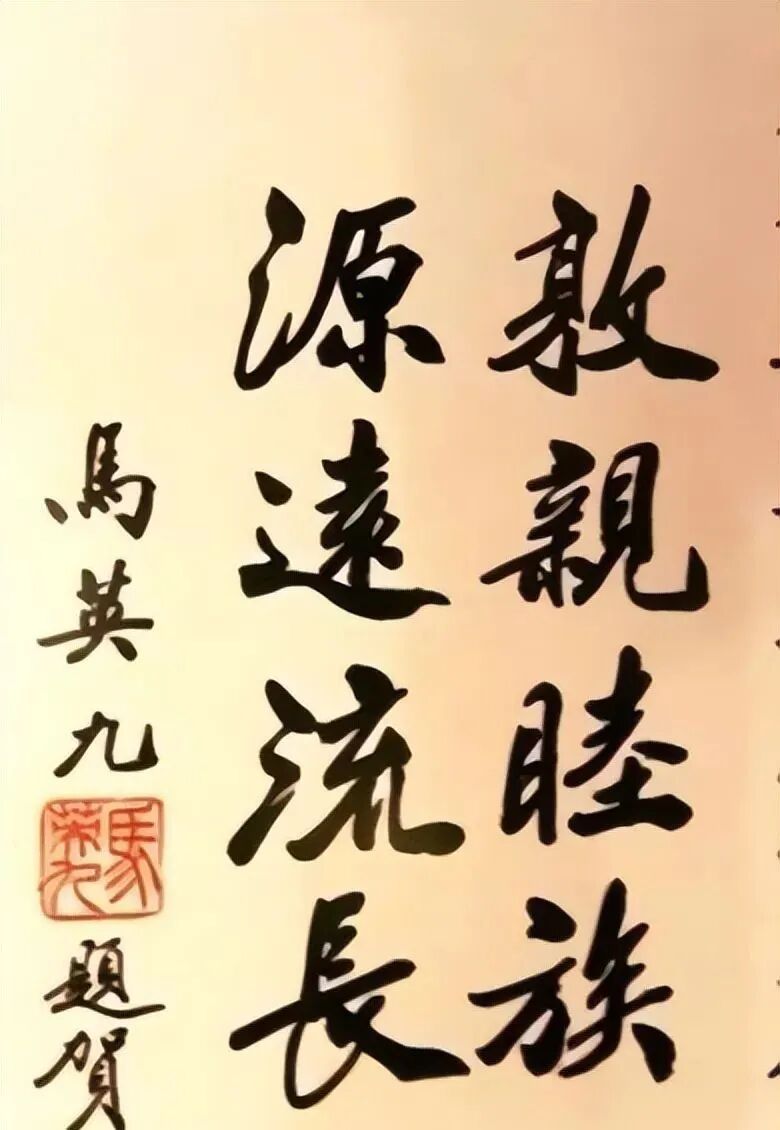 敦親睦族
源遠流長
馬英九
馬英九
題賀